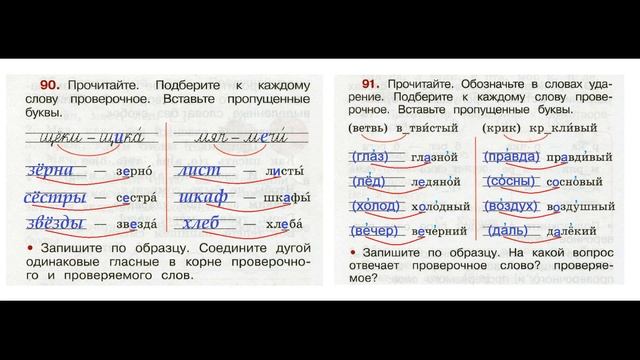 90. Прочитайте. Подберите к каждому
слову проверочное. Вставьте пропущенные
буквы.
щёки – щика́ мяч – мечи́
зёрна — зерно́ лист — листы́
сёстры — сестра́ шкаф — шкафы́
звёзды — звезда́ хлеб — хлеба́
• Запишите по образцу. Соедините дугой
одинаковые гласные в корне проверочно-
го и проверяемого слов.
91. Прочитайте. Обозначьте в словах уда-
рение. Подберите к каждому слову прове-
рочное. Вставьте пропущенные буквы.
(ветвь) в_тви́стый (крик) кр_кли́вый
(гла́з) глазно́й (пра́вда) правди́вый
(лёд) ледяно́й (со́сны) сосно́вый
(хо́лод) холо́дный (во́здух) возду́шный
(ве́чер) вече́рний (да́ль) далёкий
• Запишите по образцу. На какой вопрос
отвечает проверочное слово? проверяе-
мое?